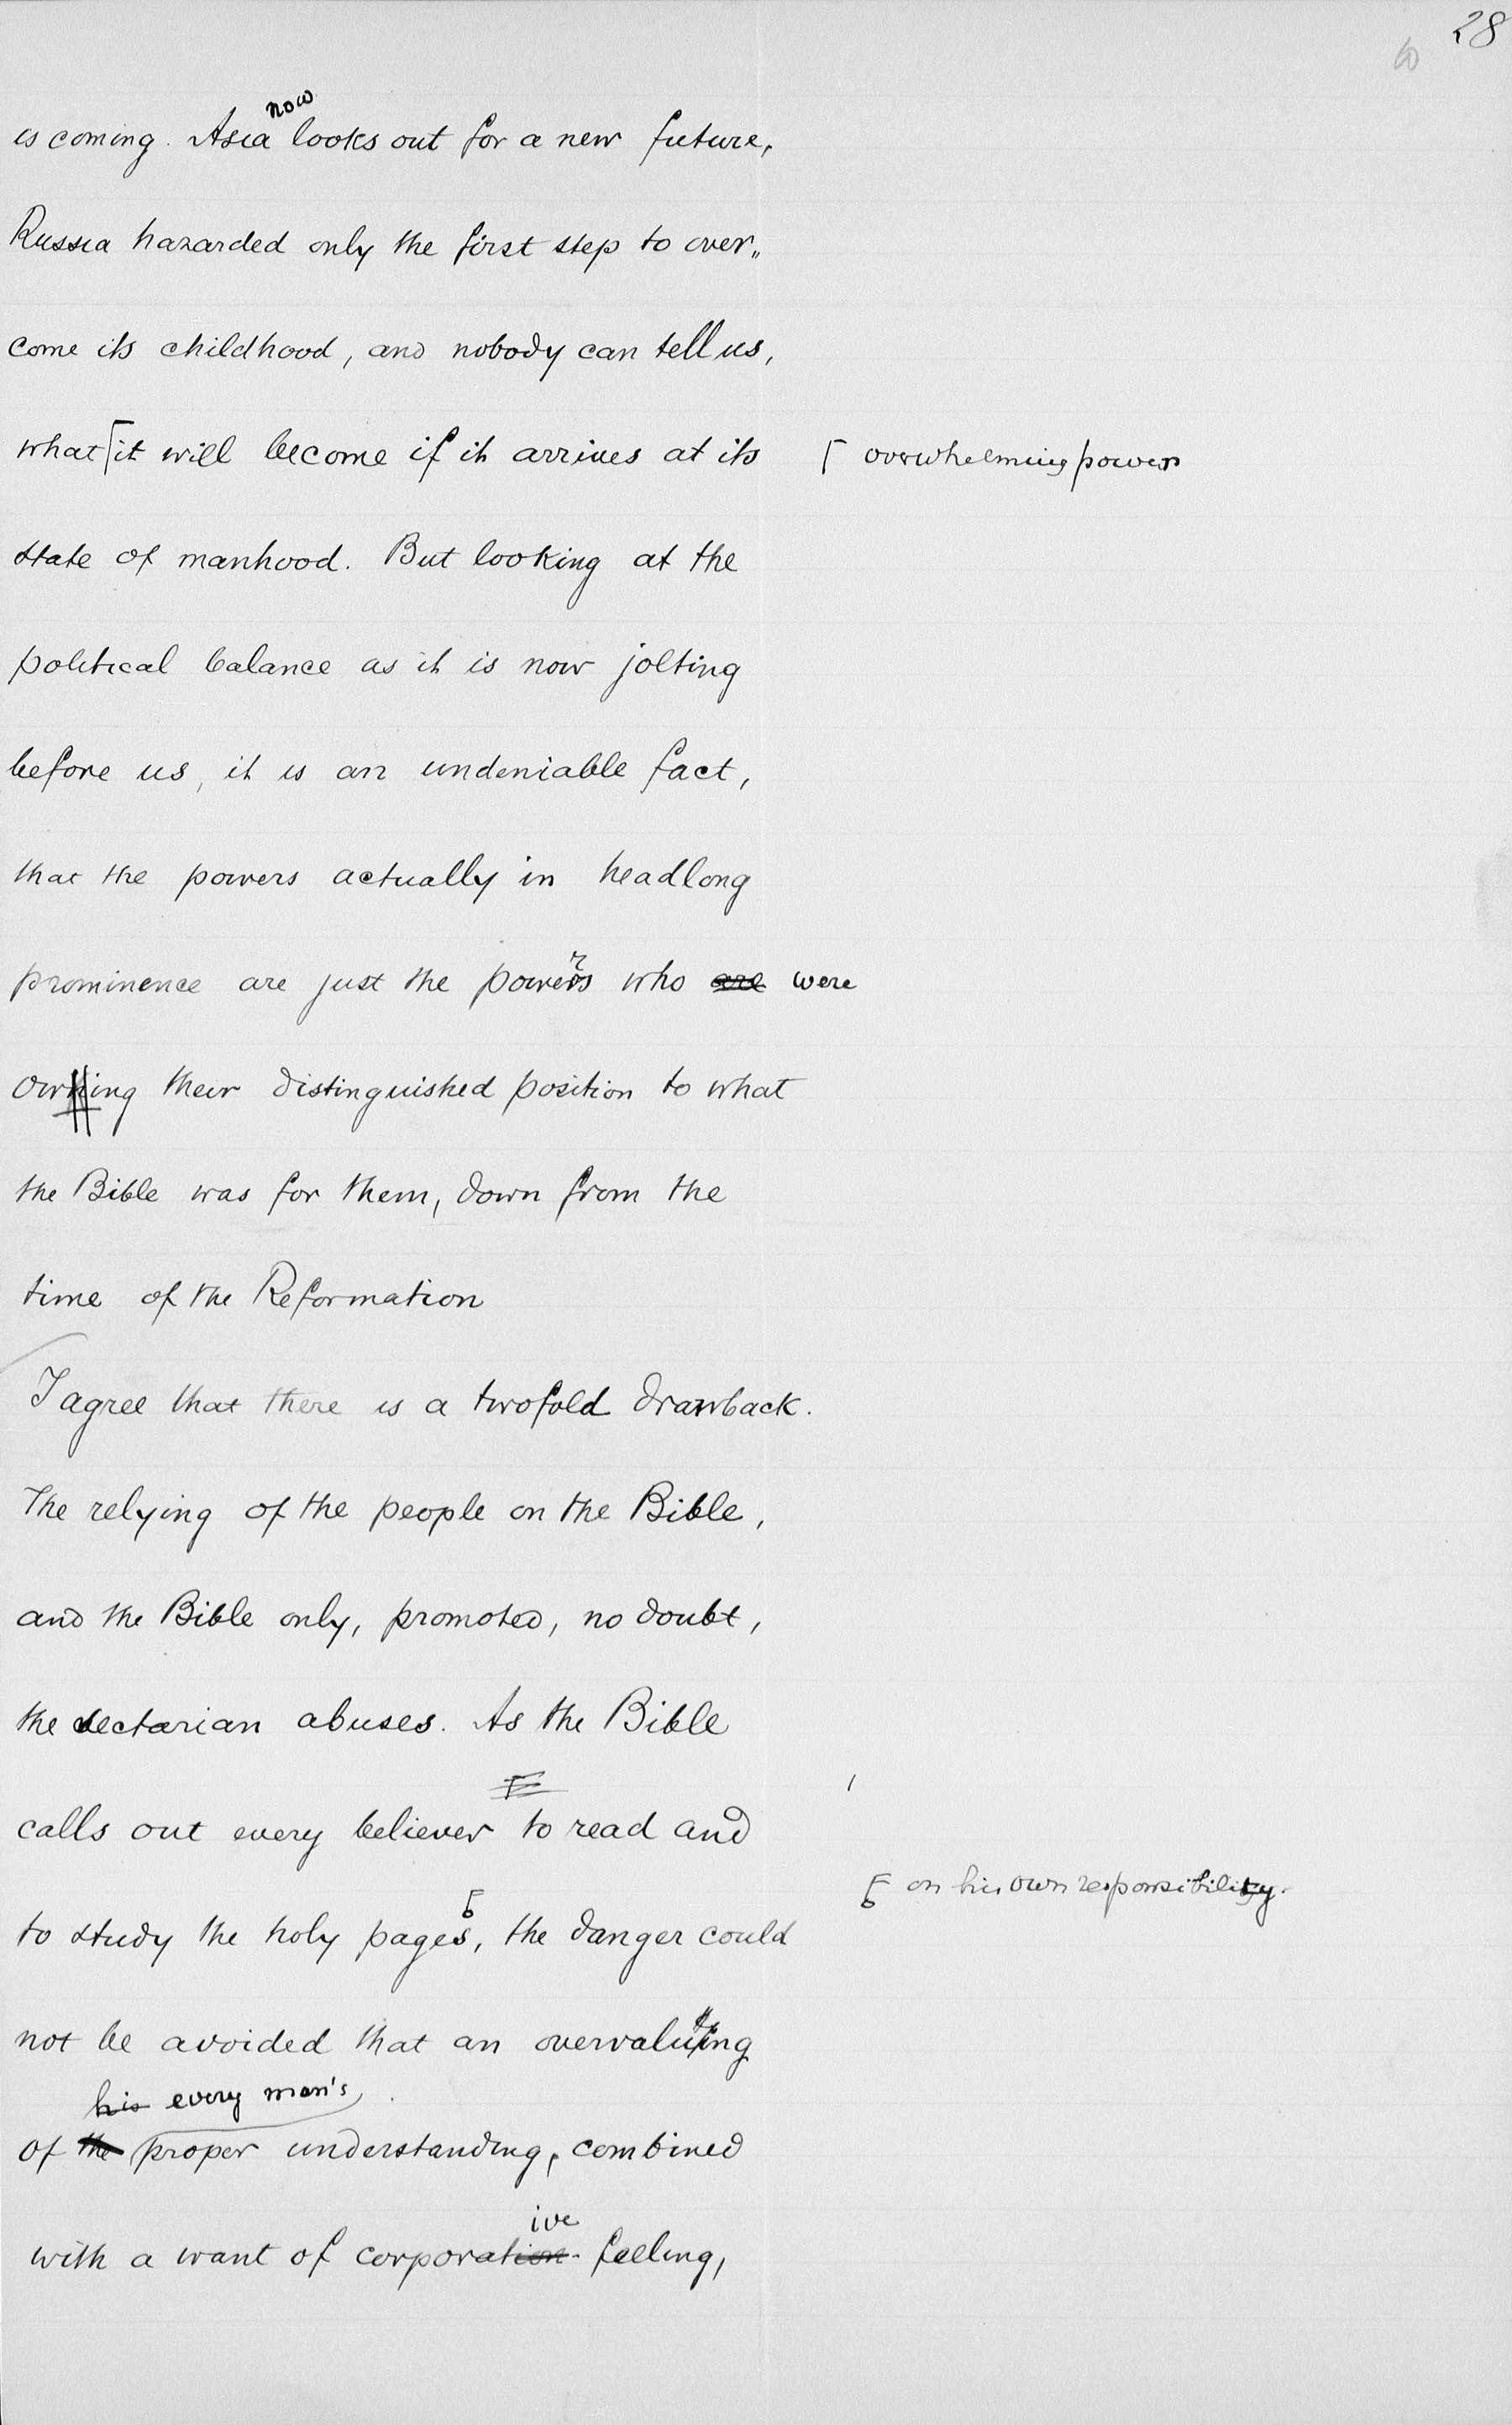 28
now
is coming. Asia looks out for a new future,
Russia hazarded only the first step to over„
come its childhood, and nobody can tell us,
what it will become if it arrives at its
overwhelming power
state of manhood. But looking at the
political balance as it is now jolting
before us, it is an undeniable fact,
that the powers actually in headlong
prominence are just the powers who are were
owning their distinguished position to what
the Bible was for them, down from the
time of the Reformation
I agree that there is a twofold drawback.
The relying of the people on the Bible,
and the Bible only, promoted, no doubt,
the sectarian abuses. As the Bible
calls out every believer to read and
on his own responsibility.
to study the holy pages, the danger could
not be avoided that an overvaluing
his every man's
of the proper understanding, combined
ive
with a want of corporation feeling,